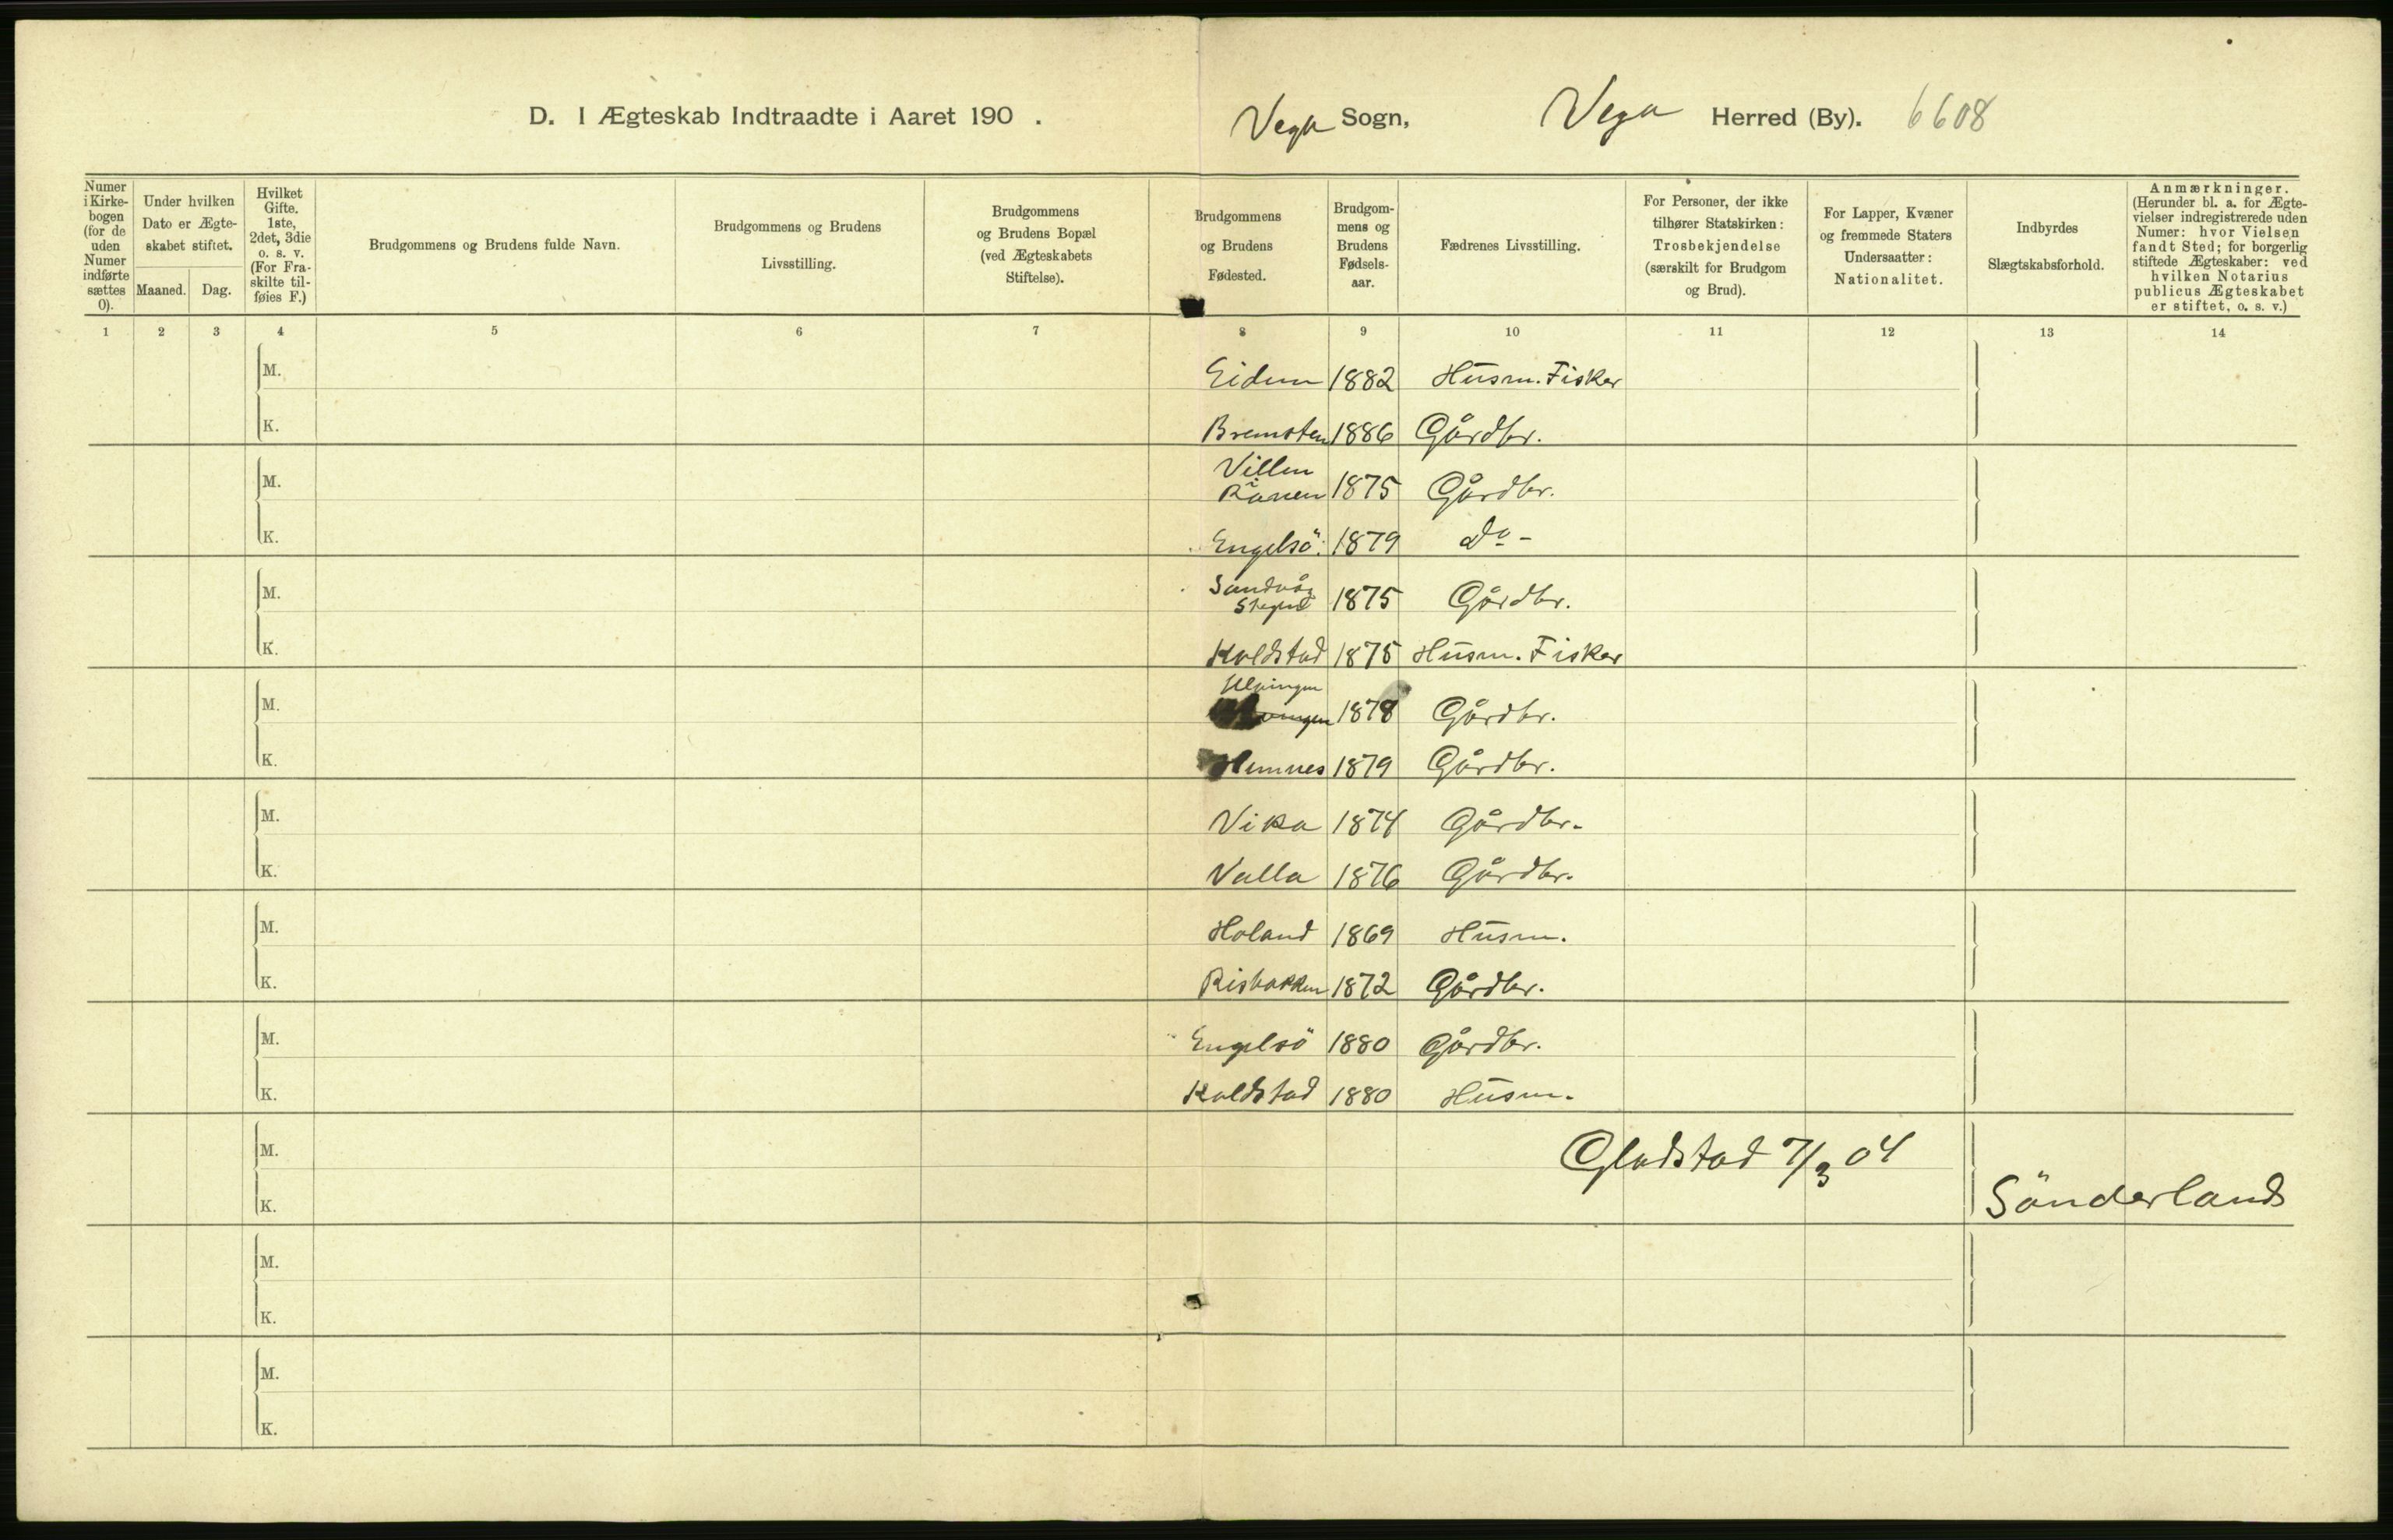 D. I Ægteskab Indtraadte i Aaret 190 . Vega Sogn, Vega Herred (By). 6608
Numer i Kirkebogen (for de uden Numer indførte sættes 0).
Under hvilken Dato er Ægteskabet stiftet.
Maaned. Dag.
Hvilket Gifte. 1ste, 2det, 3die o. s. v. (For Fraskilte tilføies F.)
Brudgommens og Brudens fulde Navn.
Brudgommens og Brudens Livsstilling.
Brudgommens og Brudens Bopæl (ved Ægteskabets Stiftelse).
Brudgommens og Brudens Fødested.
Brudgommens og Brudens Fødselsaar.
Fædrenes Livsstilling.
For Personer, der ikke tilhører Statskirken: Trosbekjendelse (særskilt for Brudgom og Brud).
For Lapper, Kvæner og fremmede Staters Undersaatter: Nationalitet.
Indbyrdes Slægtskabsforhold.
Anmærkninger. (Herunder bl. a. for Ægtevielser indregistrerede uden Numer: hvor Vielsen fandt Sted; for borgerlig stiftede Ægteskaber: ved hvilken Notarius publicus Ægteskabet er stiftet, o. s. v.)
1 2 3 4 5 6 7 8 9 10 11 12 13 14
M. Eidem 1882 Husm. Fisker
K. Bremsten 1886 Gårdbr.
M. Villen i Ranen 1875 Gårdbr.
K. Engelsö. 1879 Do -
M. Sandvåg 1875 Gårdbr.
K. Koldstad 1875 Husm. Fisker
Ulvingen
M. 1878 Gårdbr.
K. Hemnes 1879 Gårdbr.
M. Vika 1874 Gårdbr.
K. Valla 1876 Gårdbr.
M. Holand 1869 Husm.
K. Risbakken 1872 Gårdbr.
M. Engelsö 1880 Gårdbr.
K. Koldstad 1880 Husm.
M. Gladstad 7/3 04
K. Sönderlands
M.
K.
M.
K.